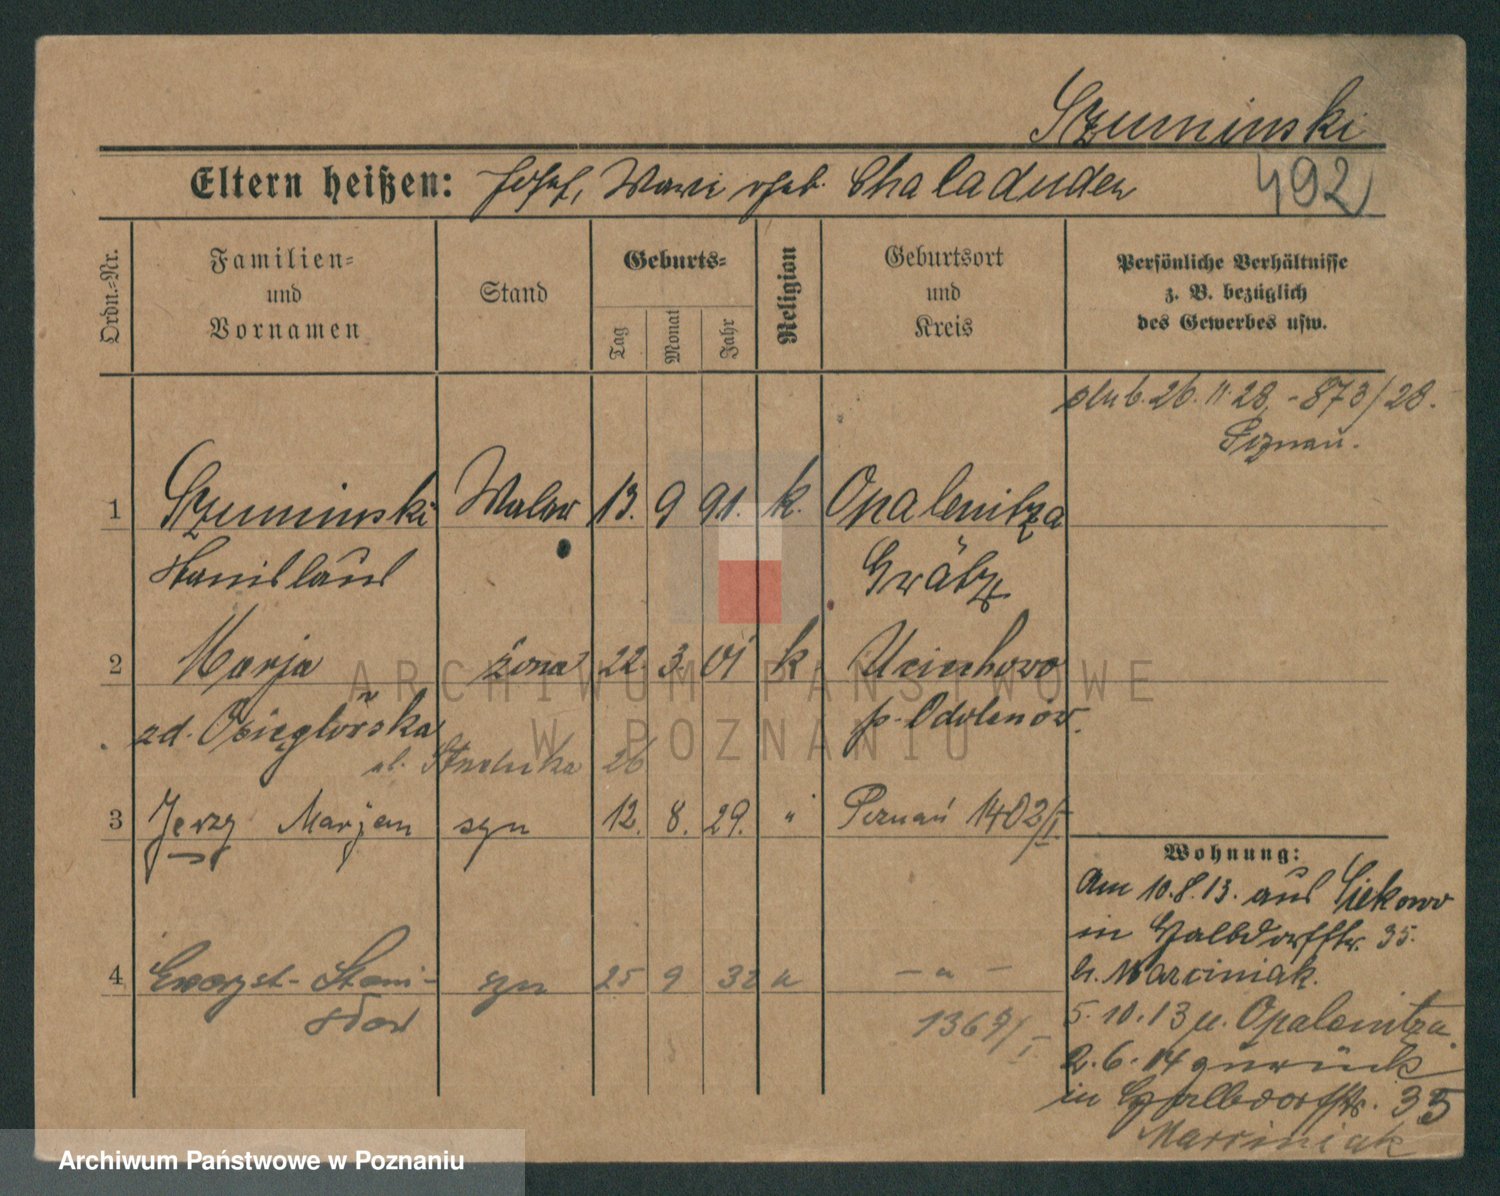 Szuminski
Eltern heißen: Josef, Marie geb. Chaladuden
492
Ordn.-Nr.
Familien-
und
Vornamen
Stand
Geburts-
Tag
Monat
Jahr
Religion
Geburtsort
und
Kreis
Persönliche Verhältnisse
z. B. bezüglich
des Gewerbes usw.
ślub. 26. 11. 28. - 873/28.
Poznań.
1 Szuminski Maler 13. 9 91. k. Opalenitza
Stanislaus Grätz
2 Marja żona 22. 3. 01 k
zd. p. Odolanów.
26
3 Jerzy Marjan syn 12. 8. 29. " Poznań 1402/I
4 Ewaryst- syn 25 9 32 " - " -
1369/I
Wohnung:
Am 10.8.13. aus Siekowo
in Halbdorfstr. 35.
b. Marciniak.
5.10.13 n. Opalenitza.
2.6.14 zurück
in Halbdorfstr. 35
Marciniak
ARCHIWUM PAŃSTWOWE
W POZNANIU
Archiwum Państwowe w Poznaniu